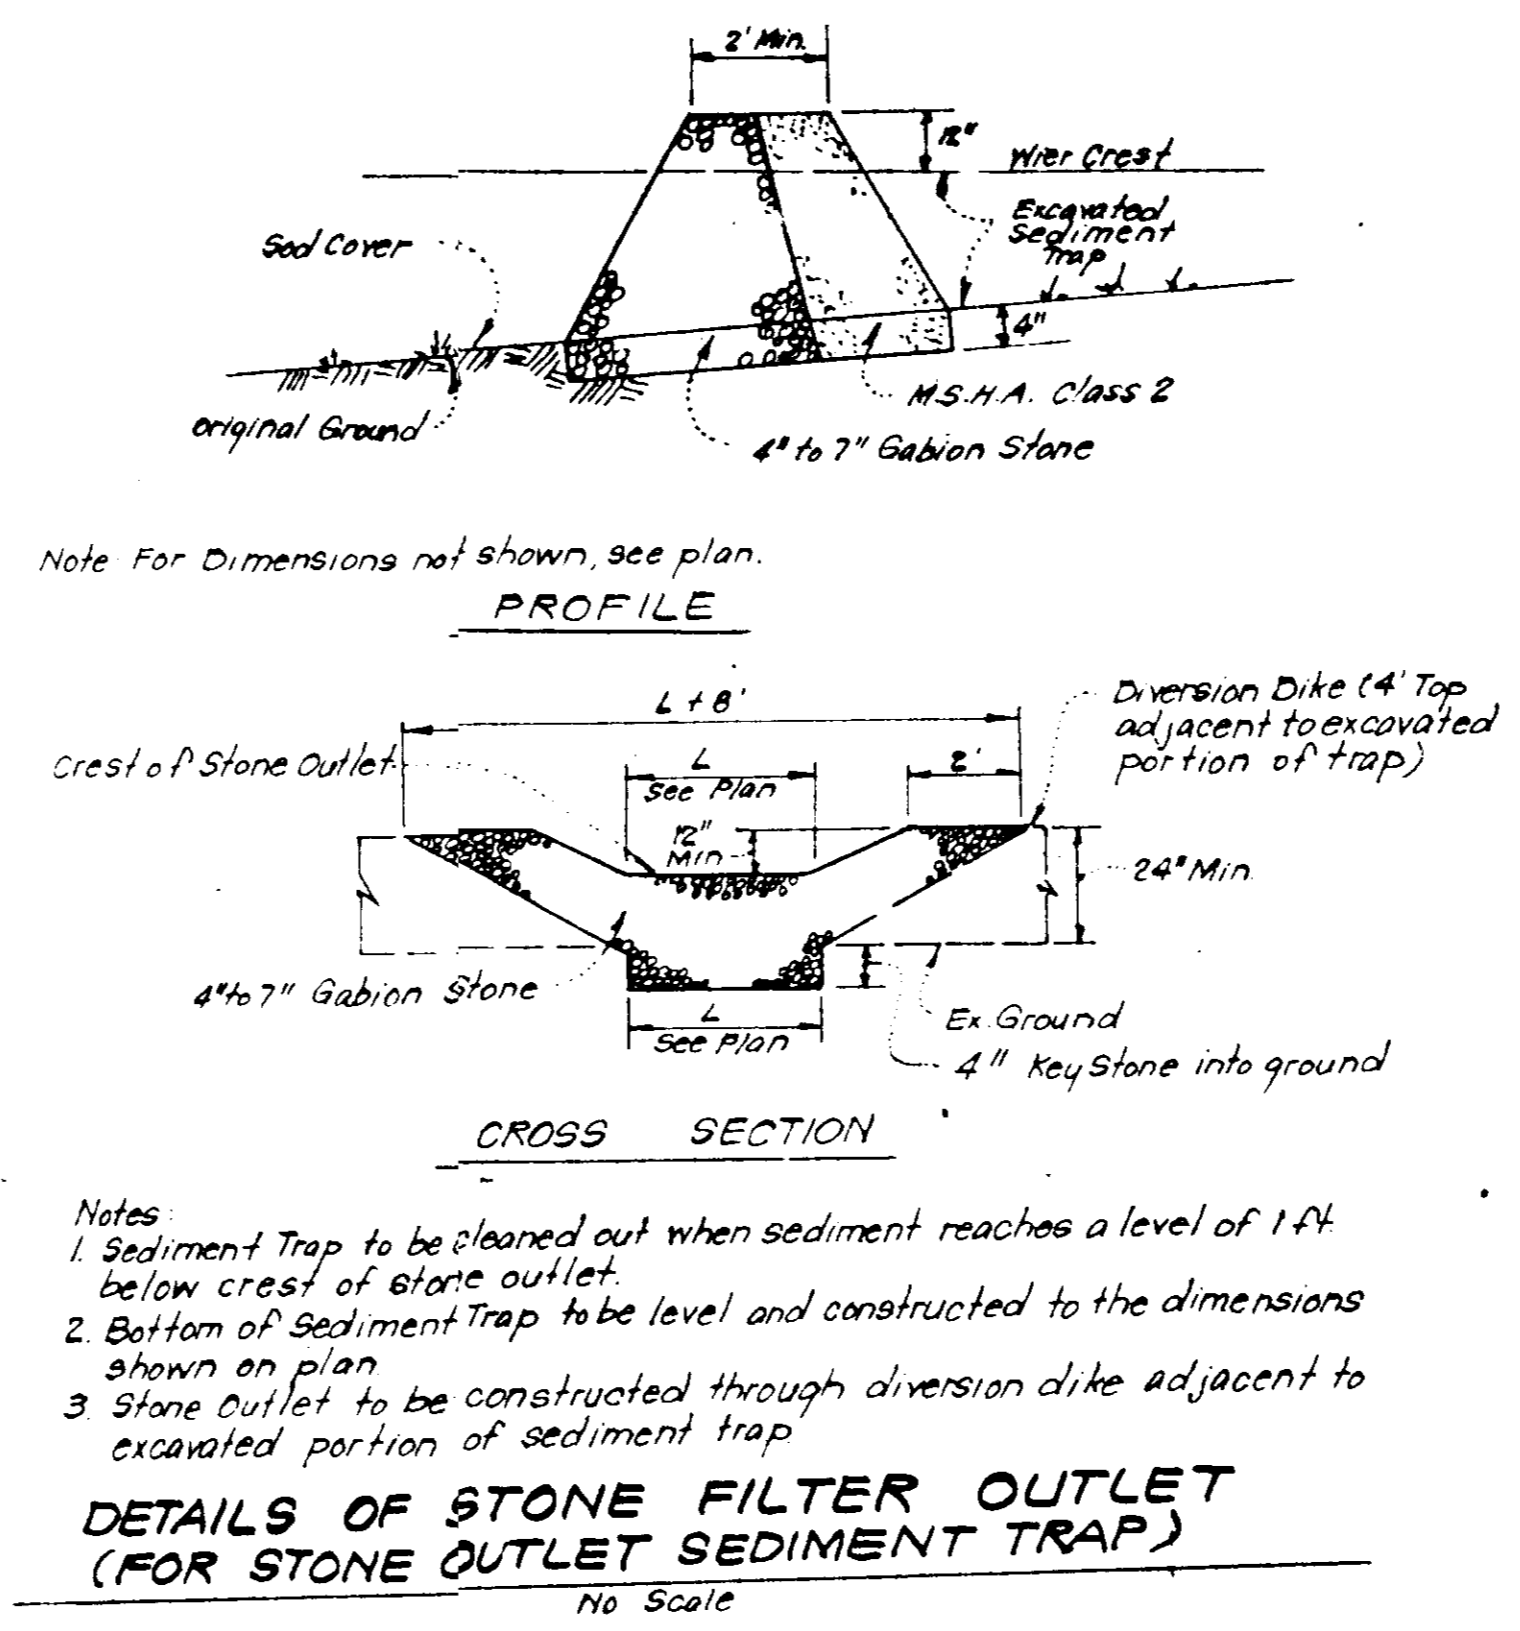 2' Min.
12"
Wier Crest
Excavated
Sediment
Trap
Sod Cover
4"
M.S.H.A. Class 2
Original Ground
4" to 7" Gabion Stone
Note For Dimensions not shown, see plan.
PROFILE
L + 8'
Diversion Dike (4' Top
adjacent to excavated
portion of trap)
Crest of Stone Outlet
L
See Plan
2'
12"
Min
24" Min.
4" to 7" Gabion Stone
L
See Plan
Ex. Ground
4" Key Stone into ground
CROSS SECTION
Notes:
1. Sediment Trap to be cleaned out when sediment reaches a level of 1 ft.
below crest of stone outlet.
2. Bottom of Sediment Trap to be level and constructed to the dimensions
shown on plan
3. Stone Outlet to be constructed through diversion dike adjacent to
excavated portion of sediment trap
DETAILS OF STONE FILTER OUTLET
(FOR STONE OUTLET SEDIMENT TRAP)
No Scale